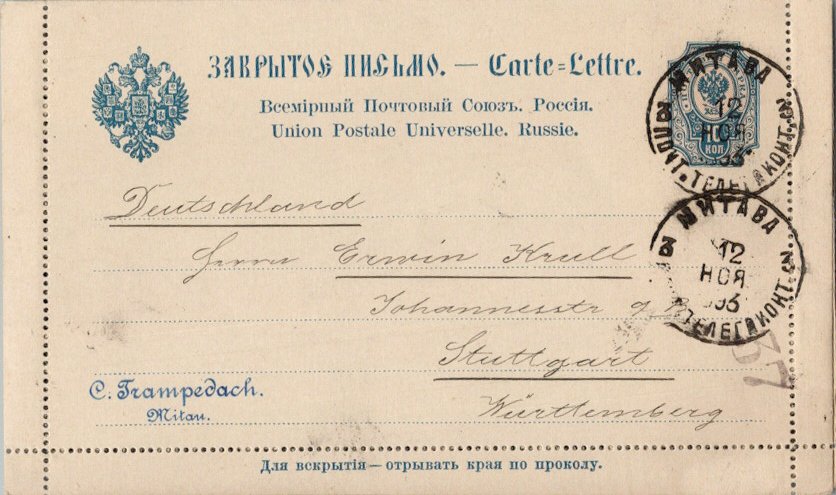 ЗАКРЫТОЕ ПИСЬМО. — Carte=Lettre.
Всемірный Почтовый Союзъ. Россія.
Union Postale Universelle. Russie.
10
КОП
МИТАВА
3 3
12
НОЯ
ПОЧТ. ТЕЛЕГ. КОНТ.
МИТАВА
3 3
12
НОЯ
ТЕЛЕГ. КОНТ.
37
Deutschland
Herrn Erwin Krull
Johannesstr
Stuttgart
Württemberg
C. Trampedach.
Mitau.
Для вскрытія—отрывать края по проколу.